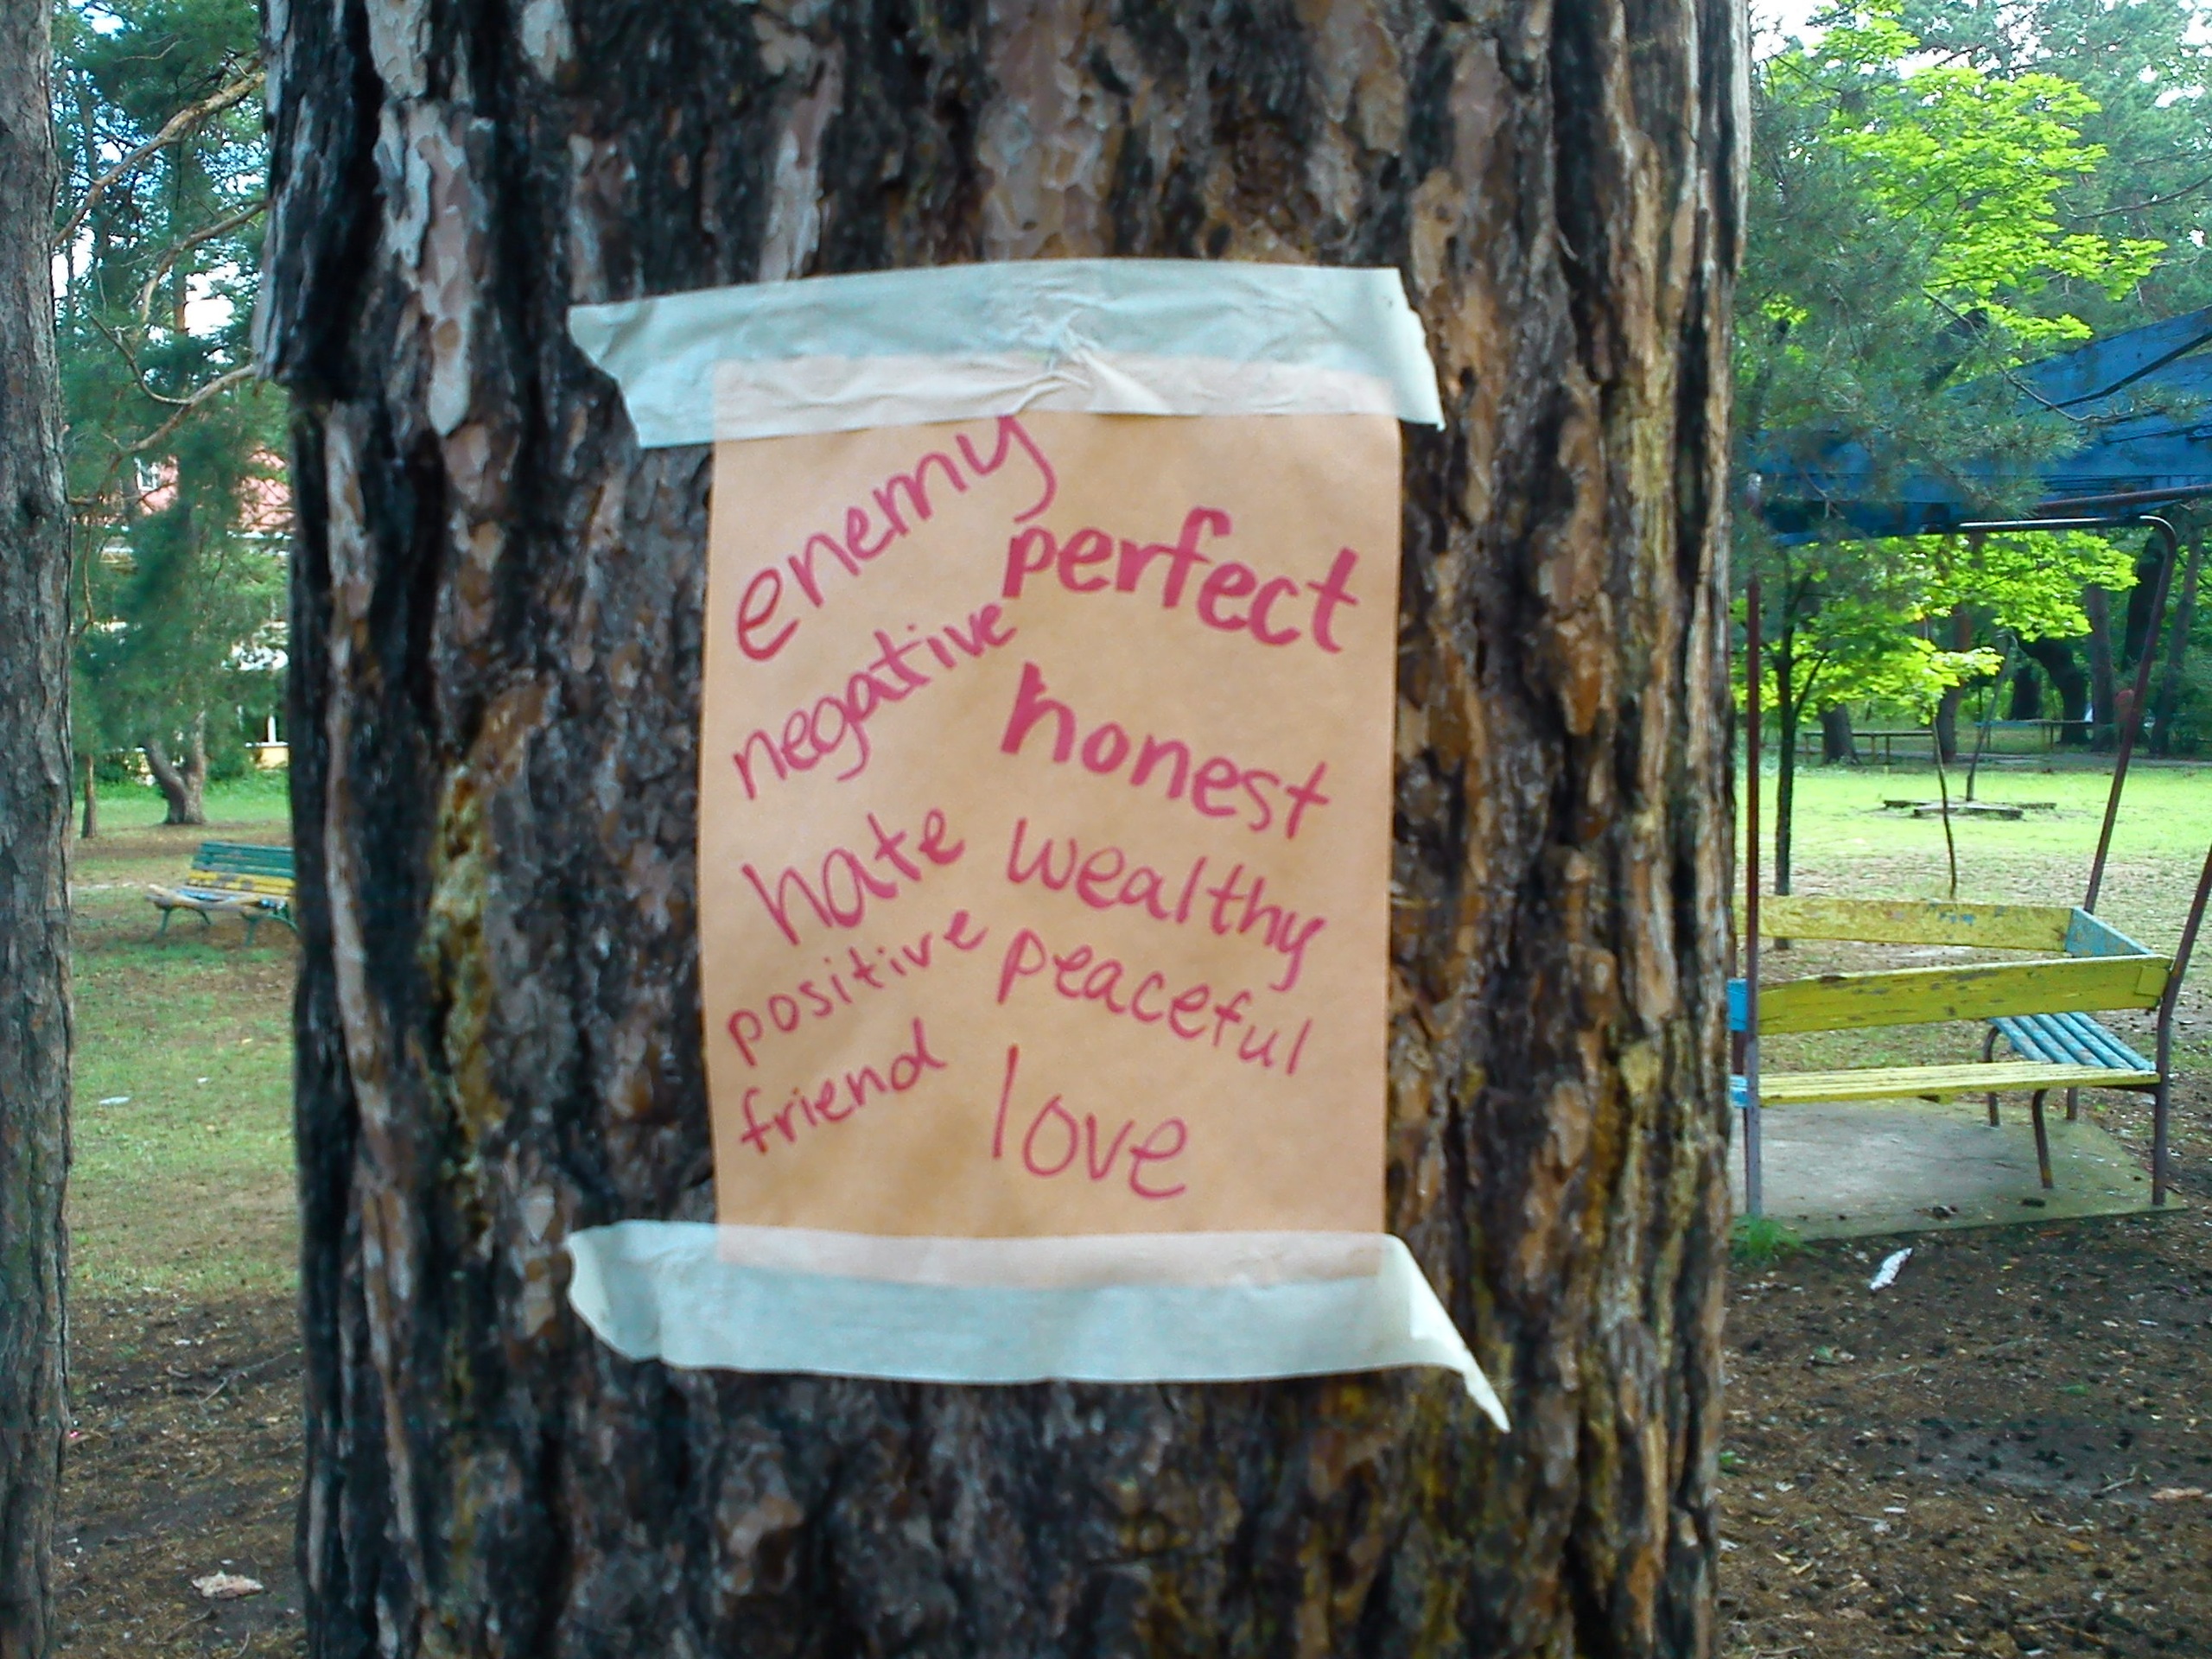 enemy
perfect
negative
honest
hate
wealthy
positive
peaceful
friend
love